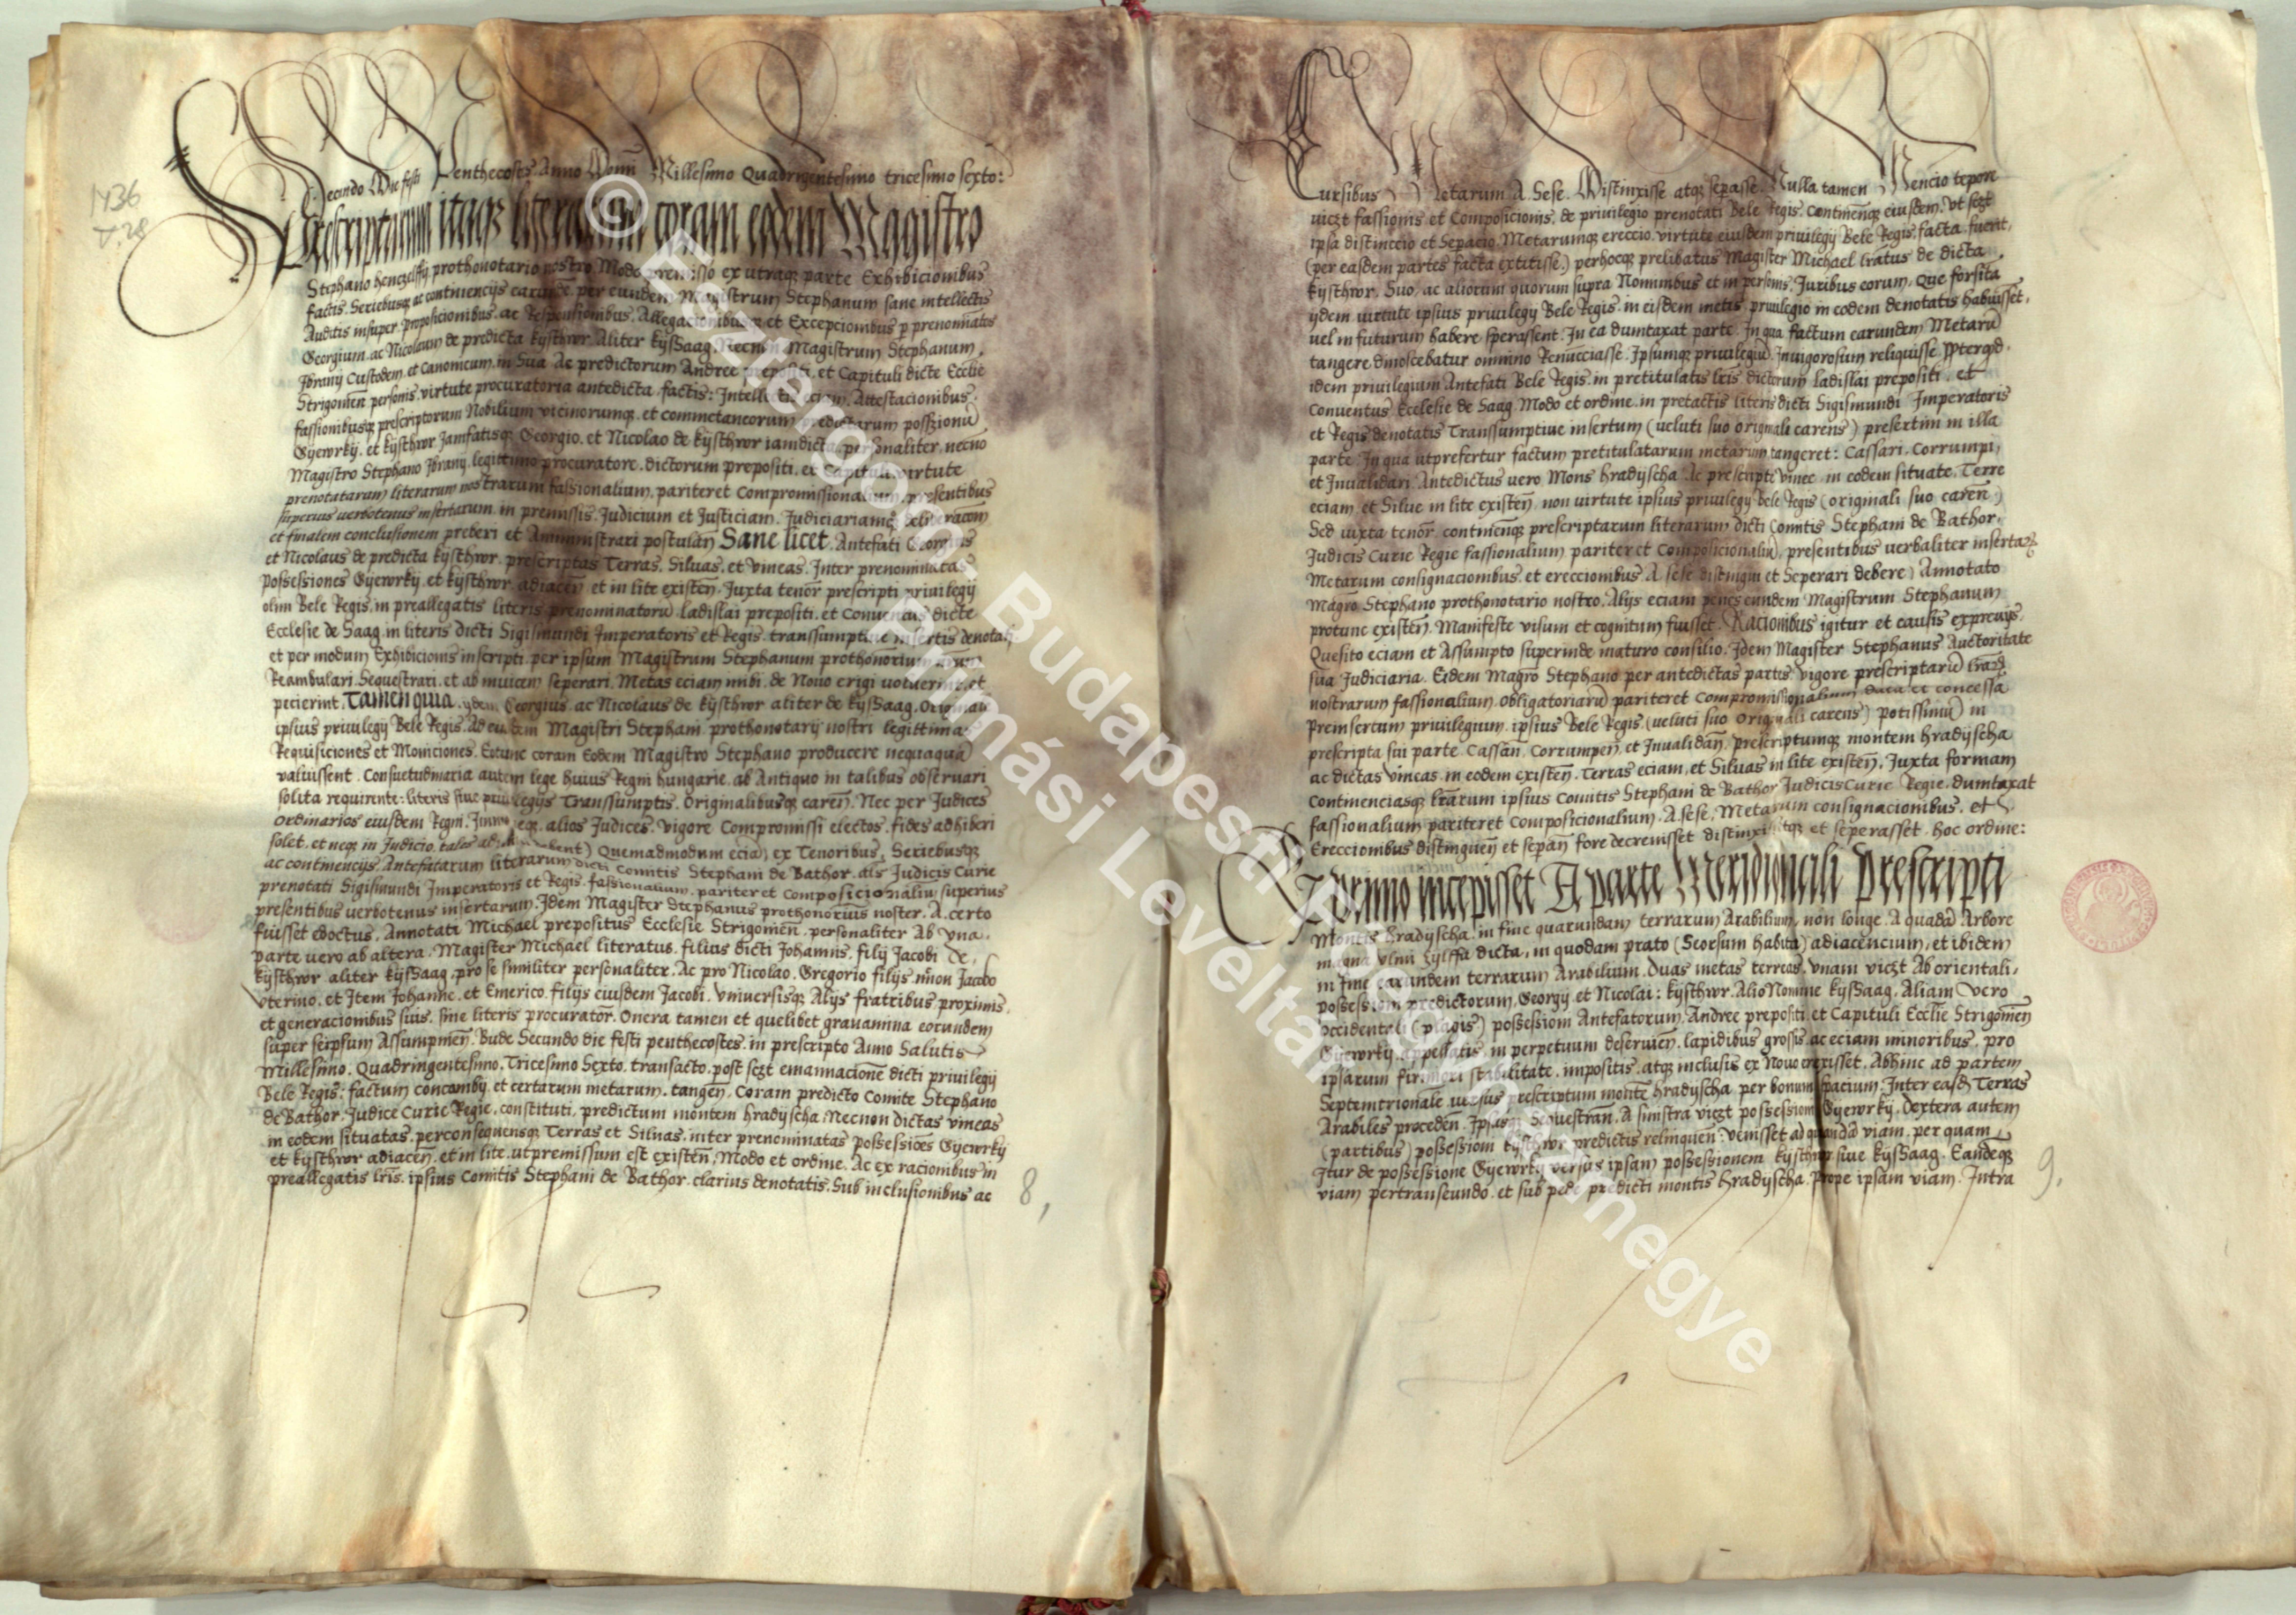 1436
V. 28
Secundo Die festi Penthecostes Anno Domī Millesimo Quadringentesimo tricesimo sexto:
Prescriptarum itaqꝫ literarum coram eodem Magistro
Stephano henczelffÿ prothonotario nostro Modo premisso ex utraqꝫ parte Exhibicionibus
factis. Seriebusqꝫ ac continencijs earunde. per eundem Magistrum Stephanum sane intellectis
Auditis insuper proposicionibus. ac Responsionibus. Allegacionibusqꝫ et Excepcionibus p prenomiatos
Georgium ac Nicolaum de predicta kÿsthwr. Aliter kÿssaag. Necnon Magistrum Stephanum
Jbranÿ Custodem et Canonicum. in Sua Ac predictorum Andree prepositi. et Capituli dicte Ecclie
Strigomeñ personis. virtute procuratoria antedicta factis: Intellectis eciam Attestacionibus.
fassionibusqꝫ prescriptorum Nobilium vicinorumqꝫ et commetaneorum predictarum possionū
Gÿewrkÿ. et kÿsthwr Jamfatisqꝫ Georgio. et Nicolao de kÿsthwr iamdicta personaliter. necnō
Magistro Stephano Jbranÿ. legittimo procuratore. dictorum prepositi. et Capituli virtute
prenotatarum literarum nostrarum fassionalium. pariteret Compromissionalium. presentibus
superius verbotenus insertarum. in premissis. Judicium et Justiciam. Judiciariamqꝫ deliberacoem
et finalem conclusionem preberi et Amministrari postulañ Sane licet. Antefati Georgius
et Nicolaus de predicta kÿsthwr. prescriptas Terras. Siluas. et vineas. Inter prenominatas
possessiones Gÿewrkÿ. et kÿsthwr. adiaceñ et in lite existeñ. Juxta tenor̄ prescripti priuilegÿ
olim Bele Regis. in preallegatis literis prenominatorū. ladislai prepositi. et Conuentus dicte
Ecclesie de Saag. in literis dicti Sigismundi Imperatoris et Regis. transsumptiue insertis denotati
et per modum Exhibicionis inscripti. per ipsum Magistrum Stephanum prothonorium nrum
Reambulari. Sequestrari. et ab inuicem seperari. Metas eciam inibi. de Nouo erigi voluerint. et
pecierint. Tamen quia. ÿdem Georgius. ac Nicolaus de kÿsthwr aliter de kÿssaag. Originale
ipsius priuilegÿ Bele Regis. Ad eiusdem Magistri Stephani prothonotarÿ nostri legittimas
Requisiciones et Moniciones. Extunc coram Eodem Magistro Stephano producere nequaquā
valuissent. Consuetudinaria autem lege huius Regni hungarie. ab Antiquo in talibus obseruari
solita requirente: literis siue priuilegÿs Transsumptis. Originalibusqꝫ careñ. Nec per Judices
Ordinarios eiusdem Regni. Immo neqꝫ. alios Judices. vigore Compromissi electos. fides adhiberi
solet. et neqꝫ in Judicio. tales Quemadmodum eciā. ex Tenoribus. Seriebusqꝫ
ac continencÿs. Antefatarum literarum dicti Comitis Stephani de Bathor. als Judicis Curie
prenotati Sigismundi Imperatoris et Regis. fassionalium. pariter et Composicionaliū superius
presentibus verbotenus insertarum. Jdem Magister Stephanus prothonorius noster. A. certo
fuisset edoctus. Annotati Michael prepositus Ecclesie Strigomeñ. personaliter Ab vna.
parte vero ab altera. Magister Michael literatus. filius dicti Johannis. filÿ Jacobi De,
kÿsthwr aliter kÿssaag. pro se similiter personaliter. Ac pro Nicolao. Gregorio filÿs mion Jacobo
vterino. et Jtem Johanne. et Emerico. filÿs eiusdem Jacobi. vniuersisqꝫ Alÿs fratribus proximis.
et generacionibus suis. sine literis procurator̄. Onera tamen et quelibet grauamina eorundem
super seipsum Assumpmeñ. Bude Secundo die festi penthecostes. in prescripto Anno Salutis
Millesimo. Quadringentesimo. Tricesimo Sexto. transacto. post sezt emanacione dicti priuilegÿ
Bele Regis: factum concambÿ. et certarum metarum. tangeñ. Coram predicto Comite Stephano
de Bathor. Judice Curie Regie. constituti. predictum montem hradÿscha. Necnon dictas vineas
in eodem situatas. perconsequensqꝫ Terras et Siluas. inter prenominatas possessiões Gÿewrkÿ
et kÿsthwr adiaceñ. et in lite. utpremissum est existeñ. Modo et ordine. Ac ex racionibus in
preallegatis lris. ipsius Comitis Stephani de Bathor. clarius denotatis. Sub inclusionibus ac
8,
Cursibus Metarum A. Sese. Distinxisse atqꝫ sepasse. Nulla tamen Mencio tepore
viczt fassionis et Composicionis. de priuilegio prenotati Bele Regis. Continenciꝫ eiusdem. Vt sezt
ipsa distinccio et Sepacio. Metarumqꝫ ereccio. virtute eiusdem priuilegÿ Bele Regis. facta fuerit,
(per easdem partes facta extitisse.) perhocqꝫ prelibatus Magister Michael lratus de dicta
kÿsthwr. Suo. ac aliorum quorum supra Nominibus et in personis. Juribus eorum. Que forsitā
ÿdem virtute ipsius priuilegÿ Bele Regis. in eisdem metis. priuilegio in eodem denotatis habuisset,
uel in futurum habere sperassent. Ju ea dumtaxat parte. Jn qua factum earundem Metarū
tangere dinoscebatur omnino Renucciasse. Ipsumqꝫ priuilegiū. Jnuigorosum reliquisse. Pterqd.
idem priuilegium Antefati Bele Regis. in pretitulatis lris dictorum ladislai prepositi. et
Conuentus Ecclesie de Saag. Modo et ordine. in pretactis literis dicti Sigismundi Imperatoris
et Regis denotatis Transsumptiue insertum (ueluti suo originali carens) presertim in illa
parte. Jn qua utprefertur factum pretitulatarum metarum tangeret: Cassari. Corrumpi,
et Inualidari. Antedictus vero Mons hradÿscha. Ac prescripte vinee. in eodem situate. Terre
eciam. et Silue in lite existeñ. non virtute ipsius priuilegÿ Bele Regis (originali suo careñ)
Sed iuxta tenor̄. continenciꝫ prescriptarum literarum dicti Comitis Stephani de Bathor.
Judicis Curie Regie fassionalium pariter et Composicionaliū. presentibus verbaliter insertaꝝ
Metarum consignacionibus. et ereccionibus. A sese distingui et Seperari debere) Annotato
Magro Stephano prothonotario nostro. Alÿs eciam penes eundem Magistrum Stephanum
protunc existeñ. Manifeste visum et cognitum fuisset. Racionibus igitur et causis expreuÿs.
Quesito eciam et Assumpto superinde maturo consilio. Jdem Magister Stephanus Auctoritate
sua Judiciaria. Eidem Magro Stephano per antedictas partis. vigore prescriptarū lrarꝫ
nostrarum fassionalium. obligatoriarū pariteret Compromissionalium data et concessa
Preinsertum priuilegium. ipsius Bele Regis (ueluti suo originali carens) potissimū in
prescripta sui parte. Cassañ. Corrumpeñ. et Inualidañ. prescriptumqꝫ montem hradÿscha
ac dictas vineas. in eodem existeñ. Terras eciam. et Siluas in lite existeñ. Juxta formam
Continenciasqꝫ lrarum ipsius Comitis Stephani de Bathor Judicis Curie Regie. dumtaxat
fassionalium pariteret Composicionalium. A. sese. Metarum consignacionibus. et
Ereccionibus distingueñ et sepañ fore decreuisset distinxisset atqꝫ et seperasset. hoc ordine:
Primo incepisset A parte Meridionali Prescripti
Montis hradÿscha. in fine quarundam terrarum Arabilium. non longe. A quadā Arbore
magna vlmi Zÿlffa dicta, in quodam prato (Seorsum habita) adiacencium, et ibidem
in fine earundem terrarum Arabilium. Duas metas terreas. vnam viczt Ab orientali,
possessiom predictorum. Georgÿ et Nicolai: kÿsthwr. Alio Nomine kÿssaag. Aliam Vero
Occidentali (plagis) possessiom Antefatorum. Andree prepositi. et Capituli Ecclie Strigomeñ
Gÿewrkÿ. appellatis. in perpetuum deseruieñ. lapidibus grossis. ac eciam minoribus. pro
ipsarum firmiori stabilitate. impositis. atqꝫ inclusis ex Nouo erexisset. Abhinc ad partem
Septemtrionale. uersus prescriptum monte hradÿscha per bonum spacium. Inter easdē Terras
Arabiles procedeñ. Ipsasqꝫ Sequestrañ. A sinistra viczt possessiom Gÿewrkÿ. Dextera autem
(partibus) possessiom kÿsthwr predictis relinqueñ: venisset ad quandā viam. per quam
Jtur de possessione Gÿewrkÿ versus ipsam possessionem kÿsthwr siue kÿssaag. Eandeqꝫ
viam pertranseundo. et sub pede predicti montis hradÿscha. prope ipsam viam. Jntra
9.
© Esztergom-Budapesti Főegyházmegye
Prímási Levéltár